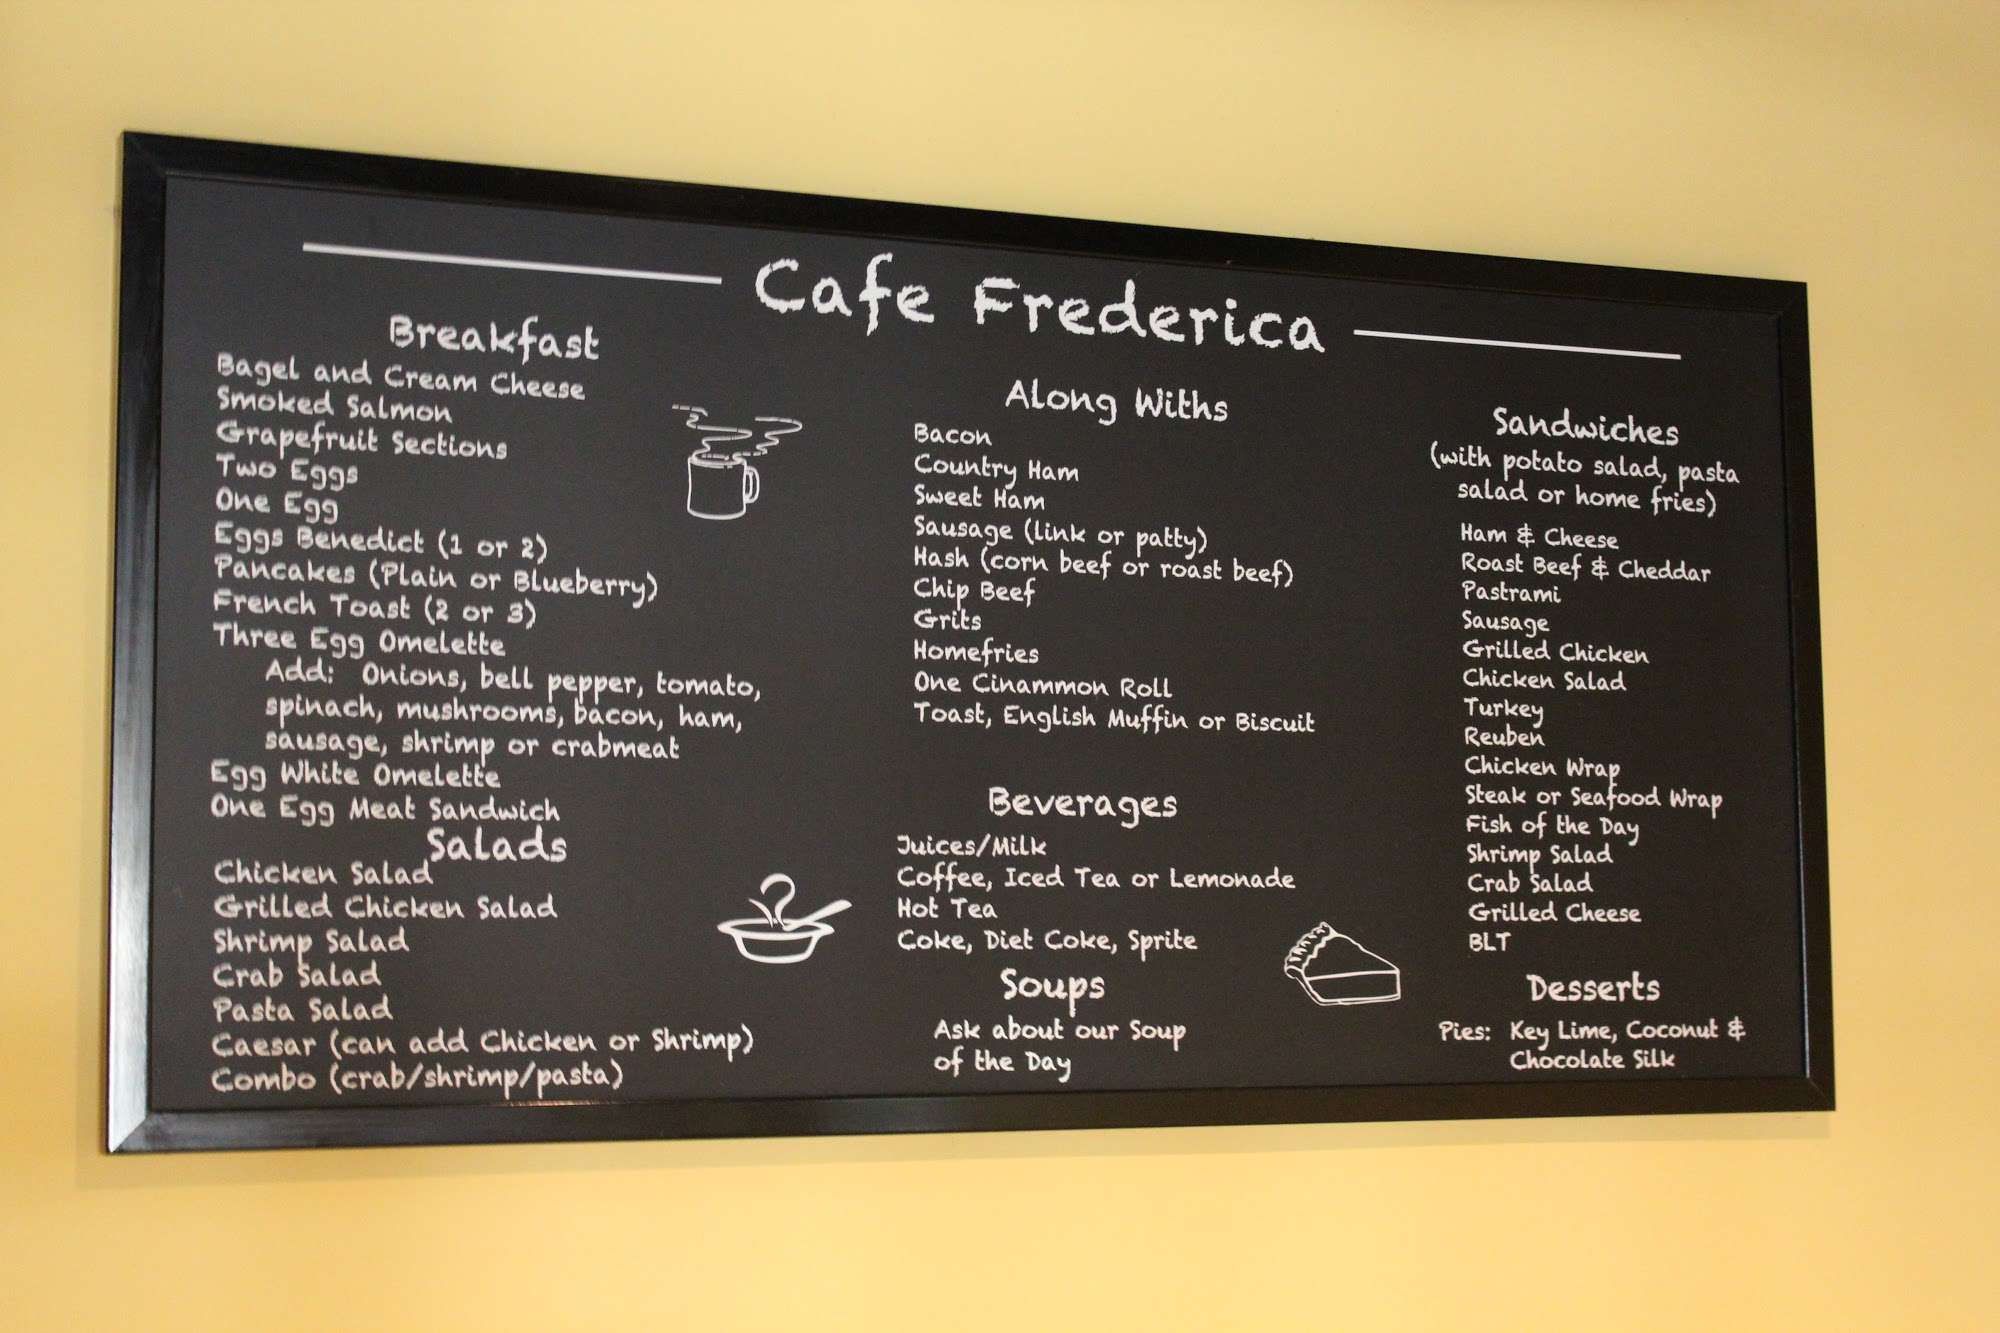 Cafe Frederica
Breakfast
Bagel and Cream Cheese
Smoked Salmon
Grapefruit Sections
Two Eggs
One Egg
Eggs Benedict (1 or 2)
Pancakes (Plain or Blueberry)
French Toast (2 or 3)
Three Egg Omelette
Add: Onions, bell pepper, tomato,
spinach, mushrooms, bacon, ham,
sausage, shrimp or crabmeat
Egg White Omelette
One Egg Meat Sandwich
Salads
Chicken Salad
Grilled Chicken Salad
Shrimp Salad
Crab Salad
Pasta Salad
Caesar (can add Chicken or Shrimp)
Combo (crab/shrimp/pasta)
Along Withs
Bacon
Country Ham
Sweet Ham
Sausage (link or patty)
Hash (corn beef or roast beef)
Chip Beef
Grits
Homefries
One Cinammon Roll
Toast, English Muffin or Biscuit
Beverages
Juices/Milk
Coffee, Iced Tea or Lemonade
Hot Tea
Coke, Diet Coke, Sprite
Soups
Ask about our Soup
of the Day
Sandwiches
(with potato salad, pasta
salad or home fries)
Ham & Cheese
Roast Beef & Cheddar
Pastrami
Sausage
Grilled Chicken
Chicken Salad
Turkey
Reuben
Chicken Wrap
Steak or Seafood Wrap
Fish of the Day
Shrimp Salad
Crab Salad
Grilled Cheese
BLT
Desserts
Pies: Key Lime, Coconut &
Chocolate Silk